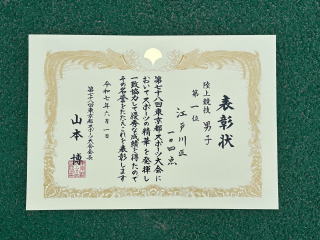 表彰状
陸上競技 男子
第一位
江戸川区
一〇四点
第七十八回東京都スポーツ大会に
おいてスポーツの精華を発揮し
一致協力して優秀な成績を得たので
その名誉をたたえこれを表彰します
令和七年六月一日
第七十八回東京都スポーツ大会会長
山本 博